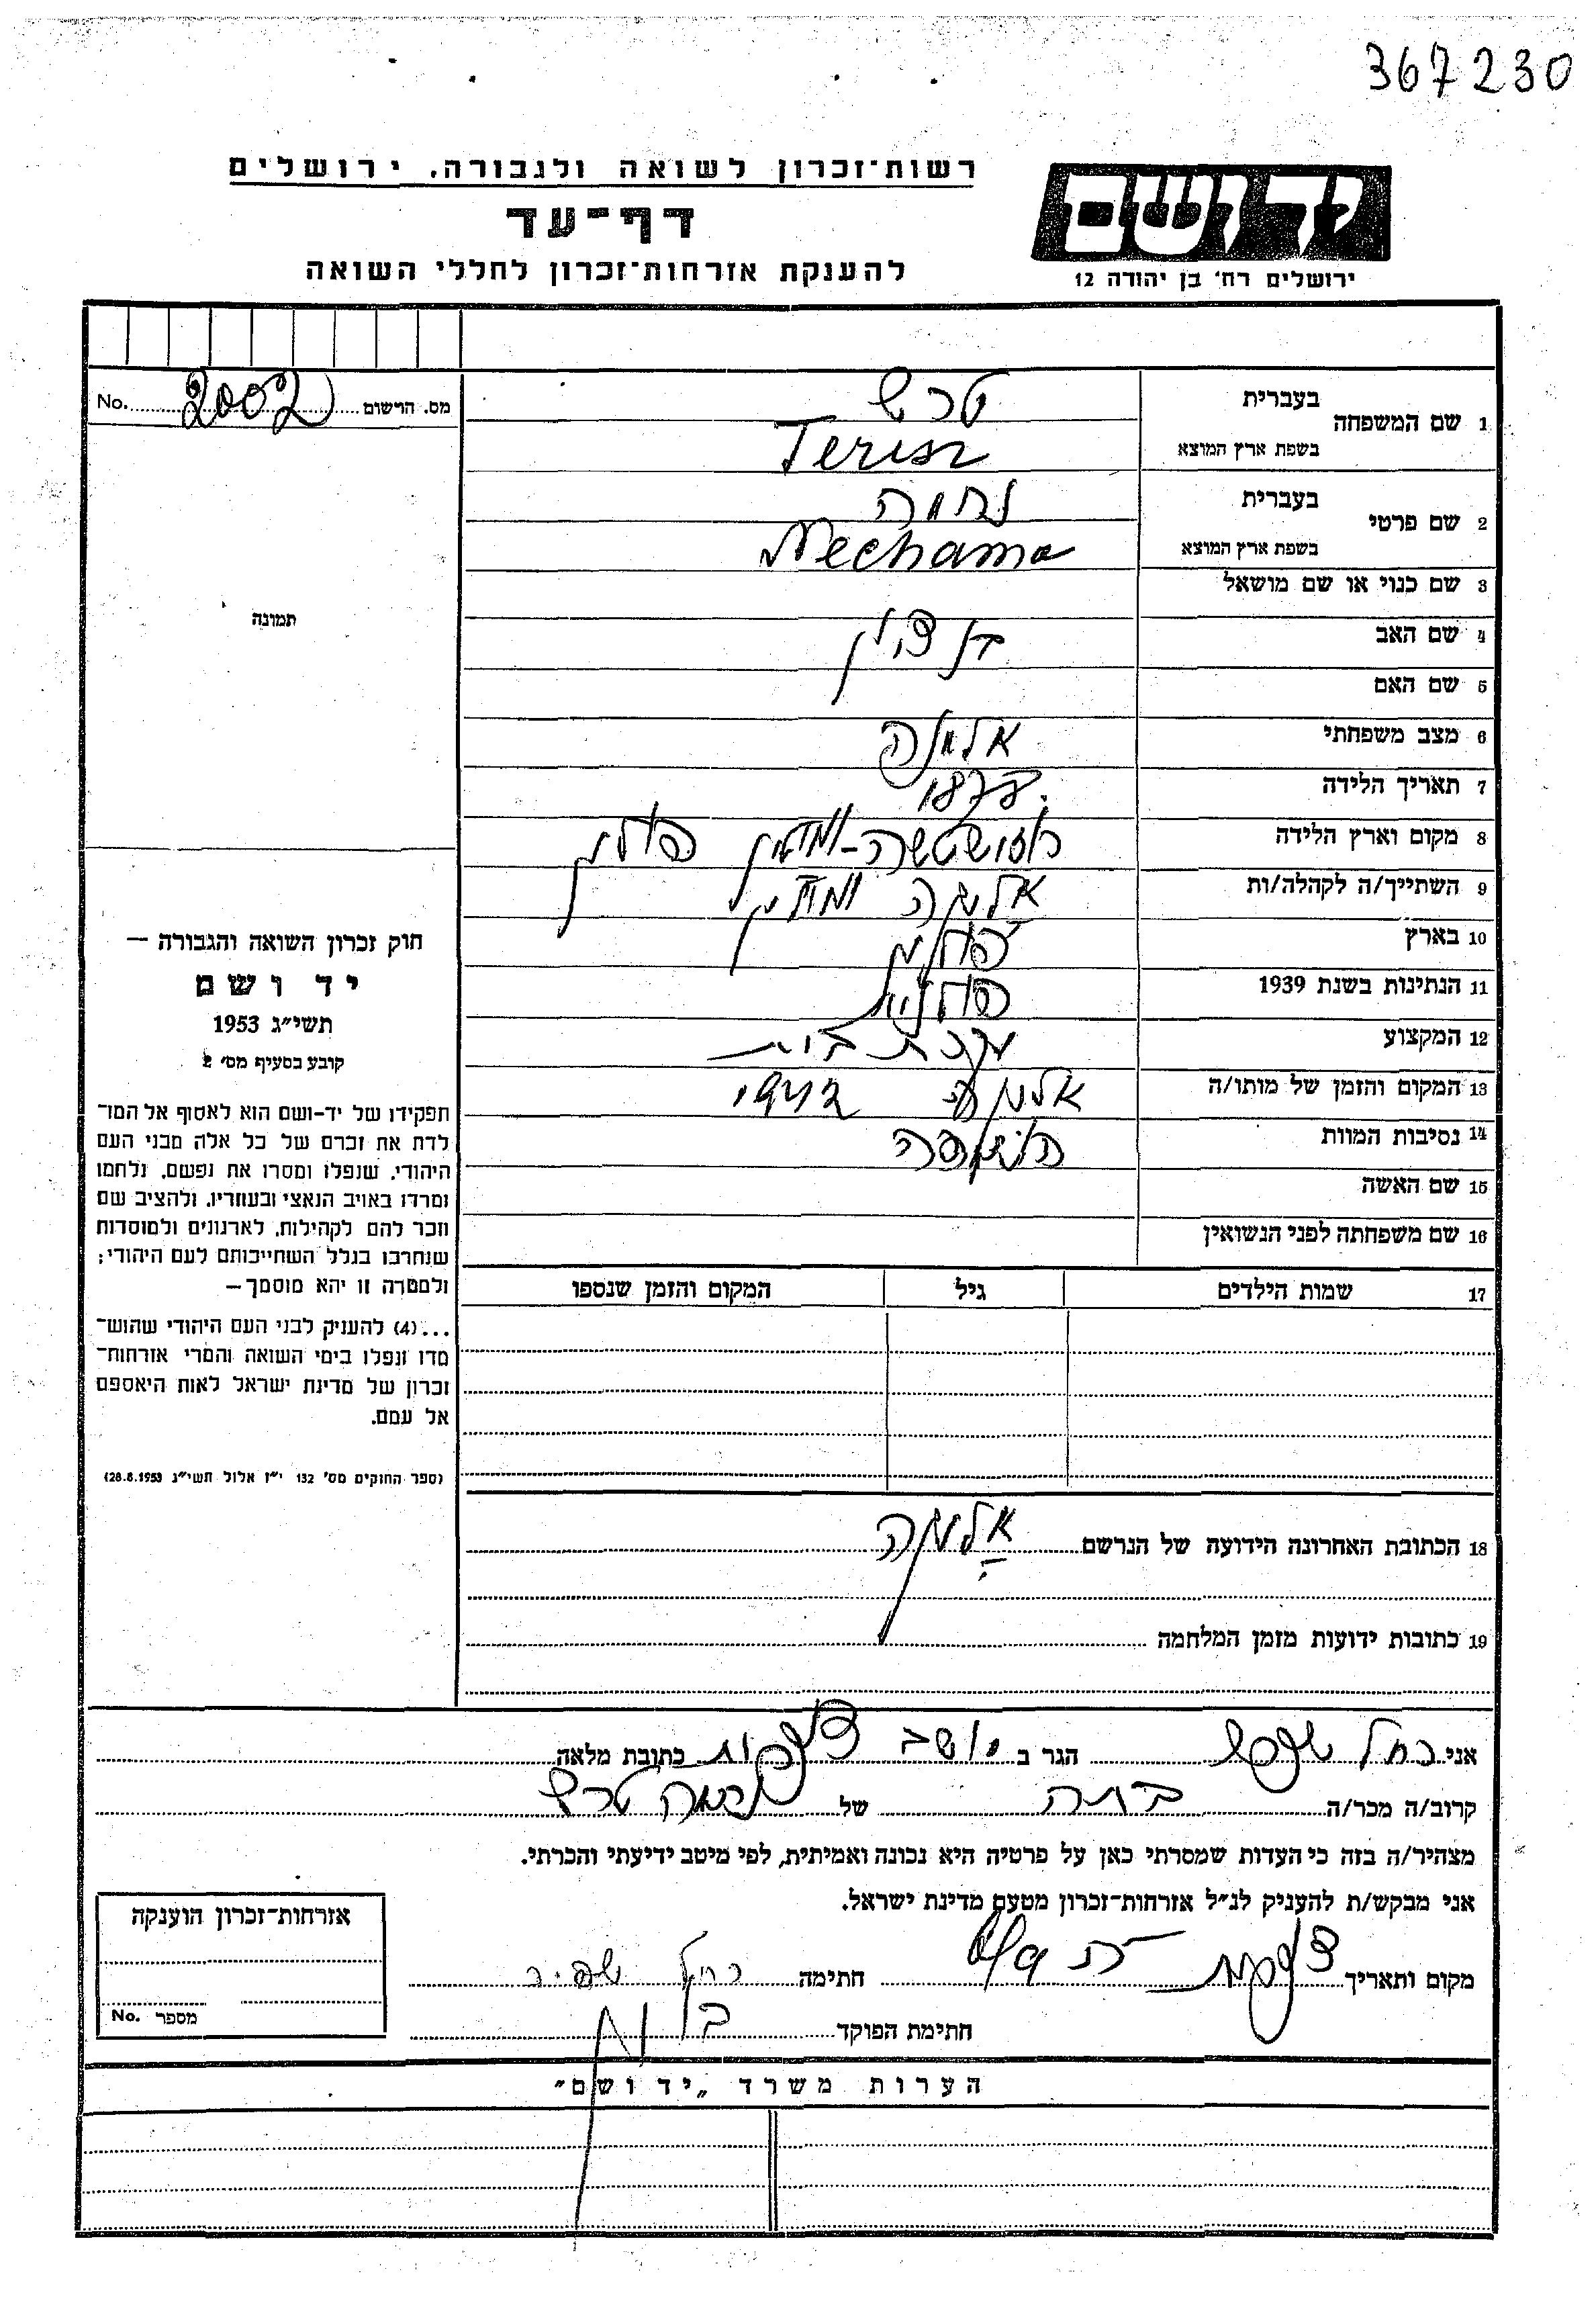 367230
רשות־זכרון לשואה ולגבורה, ירושלים
דף־עד
להענקת אזרחות־זכרון לחללי השואה
יד ושם
ירושלים רח' בן יהודה 12
מס. הרשום 2002 No.
1 שם המשפחה בעברית טרש
בשפת ארץ המוצא Terisz
2 שם פרטי בעברית נחמה
בשפת ארץ המוצא Nechama
3 שם כנוי או שם מושאל
4 שם האב בן ציון
5 שם האם
6 מצב משפחתי אלמנה
7 תאריך הלידה 1878
8 מקום וארץ הלידה פולין
9 השתייך/ה לקהלה/ות
10 בארץ פולין
11 הנתינות בשנת 1939 פולנית
12 המקצוע עקרת בית
13 המקום והזמן של מותו/ה 1942
14 נסיבות המוות
15 שם האשה
16 שם משפחתה לפני הנשואין
17 שמות הילדים גיל המקום והזמן שנספו
תמונה
חוק זכרון השואה והגבורה –
יד ושם
תשי"ג 1953
קובע בסעיף מס' 2
תפקידו של יד-ושם הוא לאסוף אל המו־
לדת את זכרם של כל אלה מבני העם
היהודי, שנפלו ומסרו את נפשם, נלחמו
ומרדו באויב הנאצי ובעוזריו, ולהציב שם
וזכר להם לקהילות, לארגונים ולמוסדות
שנחרבו בגלל השתייכותם לעם היהודי;
ולמטרה זו יהא מוסמך –
...(4) להעניק לבני העם היהודי שהוש־
מדו ונפלו בימי השואה והמרי אזרחות־
זכרון של מדינת ישראל לאות היאספם
אל עמם.
(ספר החוקים מס' 132 י"ז אלול תשי"ג 28.8.1953)
18 הכתובת האחרונה הידועה של הנרשם
19 כתובות ידועות מזמן המלחמה
אני רחל שפיר הגר ב מושב צופית כתובת מלאה
קרוב/ה מכר/ה בתה של נחמה טרש
מצהיר/ה בזה כי העדות שמסרתי כאן על פרטיה היא נכונה ואמיתית, לפי מיטב ידיעתי והכרתי.
אני מבקש/ת להעניק לנ"ל אזרחות־זכרון מטעם מדינת ישראל.
מקום ותאריך חתימה רחל שפיר
חתימת הפוקד
אזרחות־זכרון הוענקה
מספר No.
הערות משרד „יד ושם"